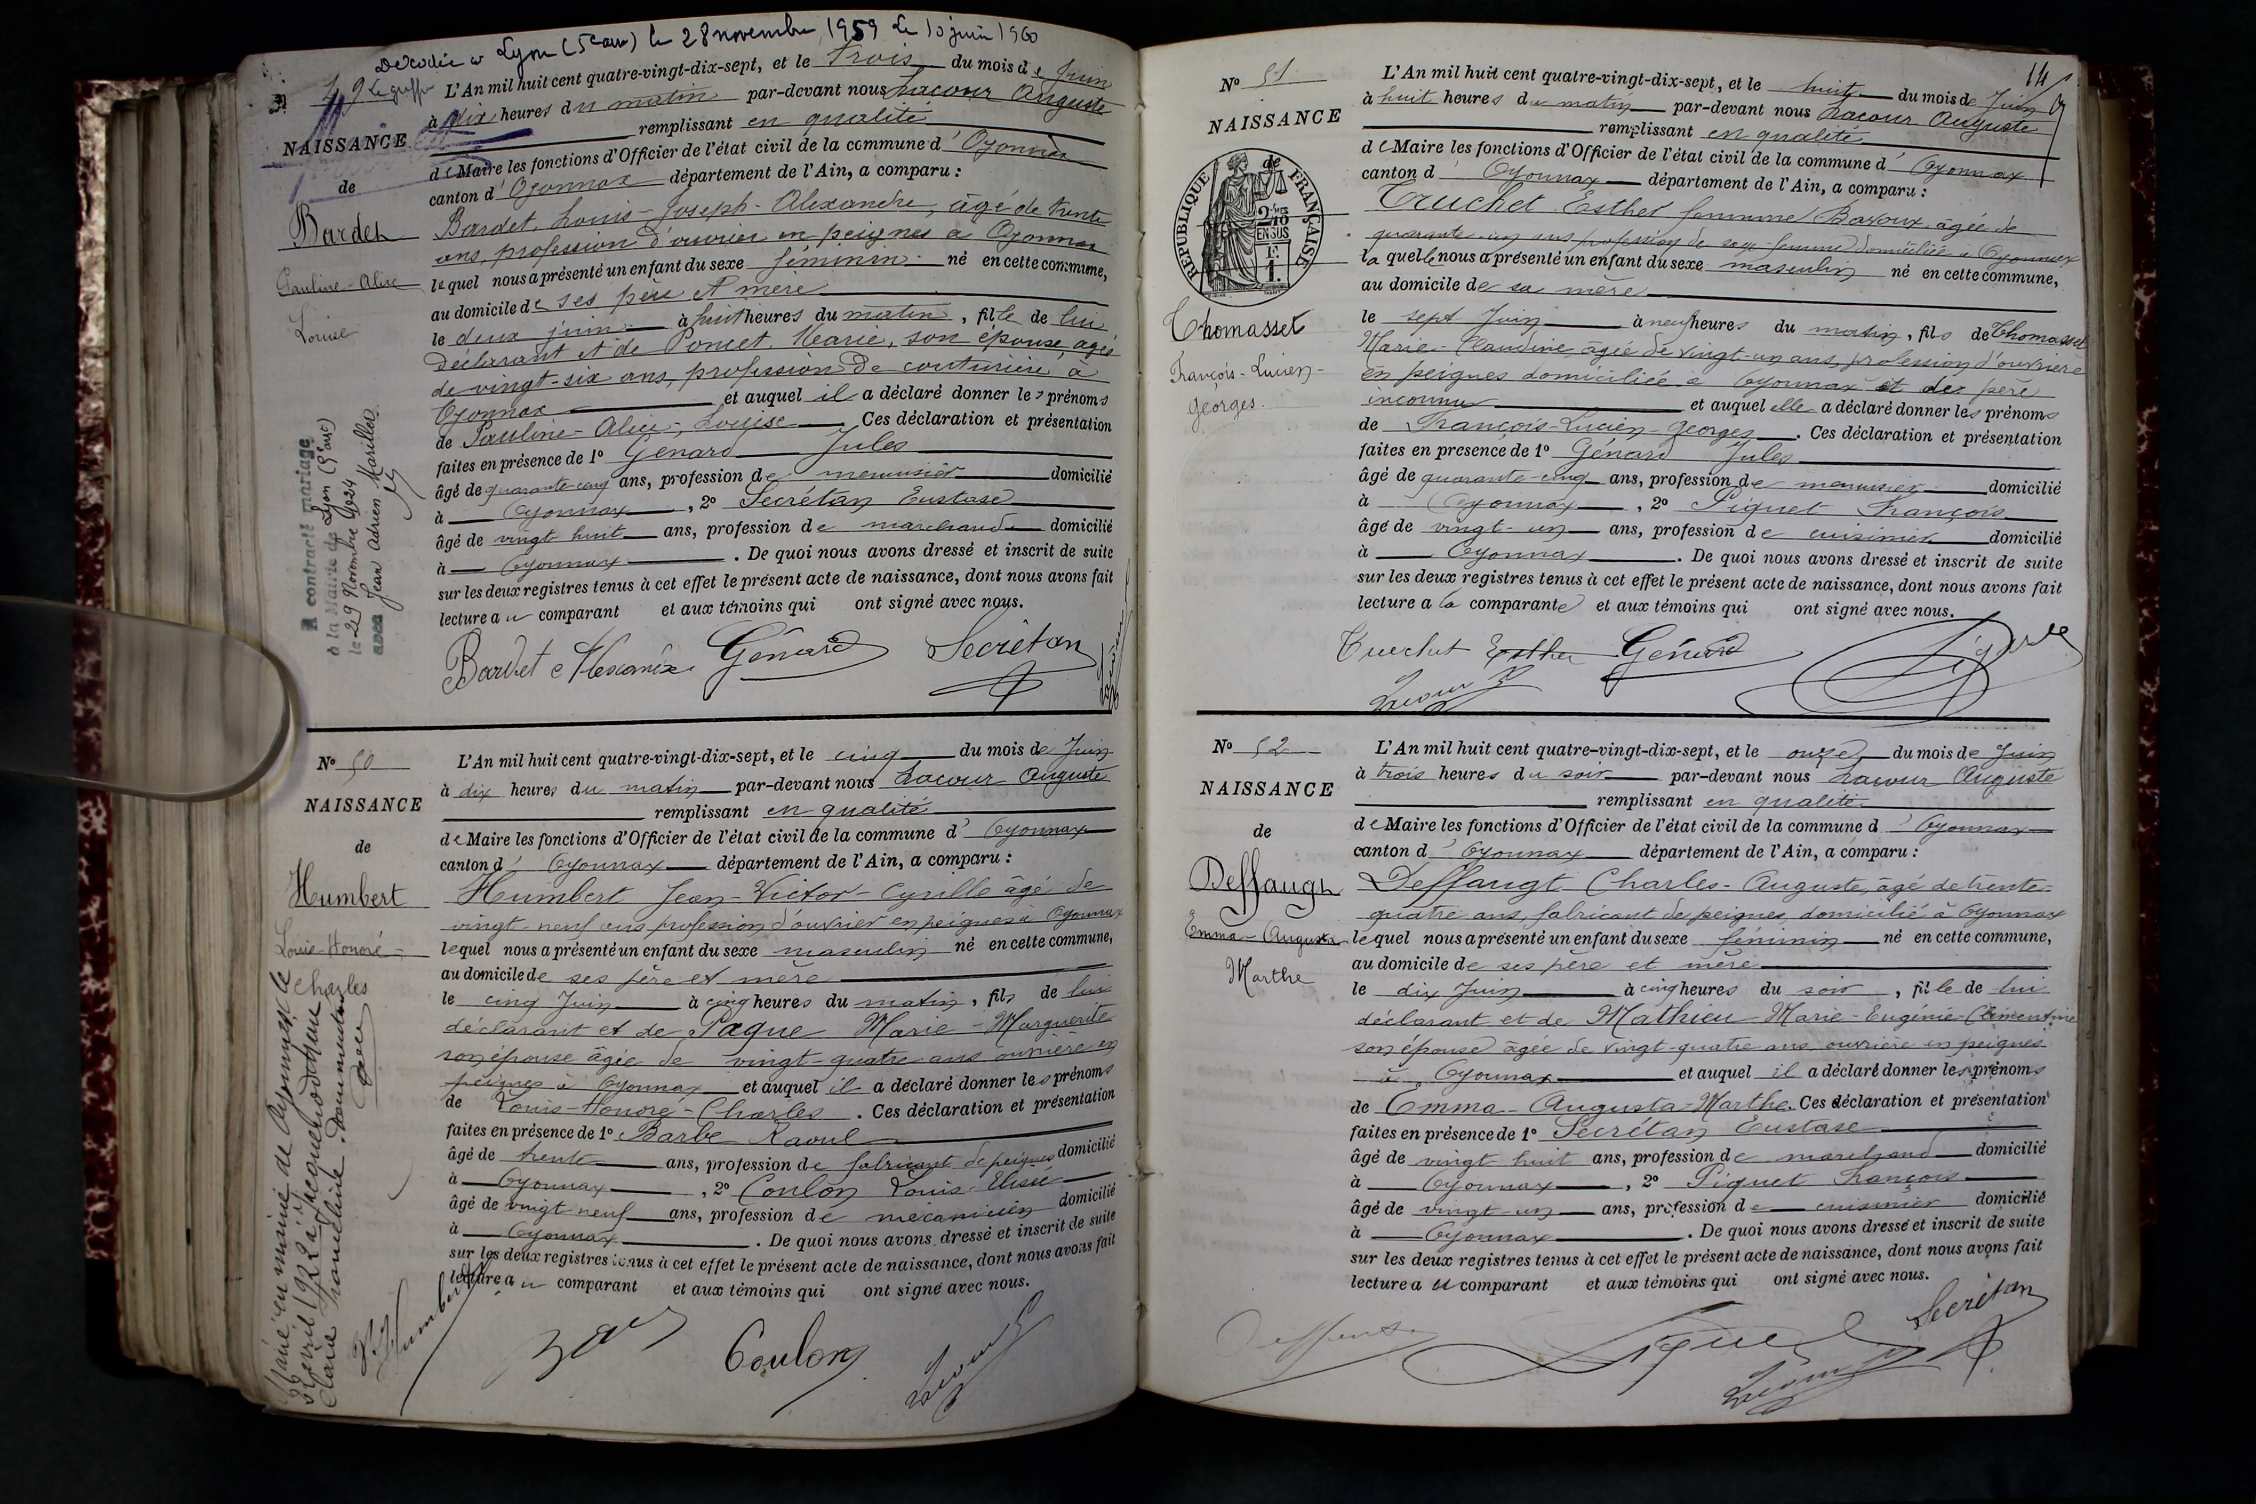 Décédée à Lyon (5e arr) le 28 novembre 1959 Le 10 juin 1960
49 Le greffier
NAISSANCE
de
Bardet
Pauline-Alice
Louise
A contracté mariage
à la Mairie de Lyon (5e arrt)
le 29 Novembre 1924
avec Jean Adrien Marillez
L'An mil huit cent quatre-vingt-dix-sept, et le trois du mois de Juin
à dix heures du matin par-devant nous Lacour Auguste
remplissant en qualité
de Maire les fonctions d'Officier de l'état civil de la commune d'Oyonnax
canton d'Oyonnax département de l'Ain, a comparu :
Bardet, Louis-Joseph-Alexandre, âgé de trente
ans, profession d'ouvrier en peignes à Oyonnax
lequel nous a présenté un enfant du sexe féminin né en cette commune,
au domicile de ses père et mère
le deux juin à huit heures du matin, fille de lui
déclarant et de Poncet, Marie, son épouse, âgée
de vingt-six ans, profession de couturière à
Oyonnax et auquel il a déclaré donner les prénoms
de Pauline-Alice-Louise. Ces déclaration et présentation
faites en présence de 1° Génard Jules
âgé de quarante-cinq ans, profession de menuisier domicilié
à Oyonnax, 2° Secrétan Eustase
âgé de vingt huit ans, profession de marchand domicilié
à Oyonnax. De quoi nous avons dressé et inscrit de suite
sur les deux registres tenus à cet effet le présent acte de naissance, dont nous avons fait
lecture au comparant et aux témoins qui ont signé avec nous.
Bardet Alexandre Génard Secrétan
N° 50
NAISSANCE
de
Humbert
Louis-Honoré-
Charles
Marié en mairie de
avril 1922 à
Claire Franceline
L'An mil huit cent quatre-vingt-dix-sept, et le cinq du mois de Juin
à dix heures du matin par-devant nous Lacour Auguste
remplissant en qualité
de Maire les fonctions d'Officier de l'état civil de la commune d'Oyonnax
canton d'Oyonnax département de l'Ain, a comparu :
Humbert Jean-Victor-Cyrille âgé de
vingt-neuf ans profession d'ouvrier en peignes à Oyonnax
lequel nous a présenté un enfant du sexe masculin né en cette commune,
au domicile de ses père et mère
le cinq Juin à cinq heures du matin, fils de lui
déclarant et de Paque Marie-Marguerite
son épouse âgée de vingt-quatre ans ouvrière en
peignes à Oyonnax et auquel il a déclaré donner les prénoms
de Louis-Honoré-Charles. Ces déclaration et présentation
faites en présence de 1° Barbe Raoul
âgé de trente ans, profession de fabricant de peignes domicilié
à Oyonnax, 2° Coulon Louis-Elisée
âgé de vingt neuf ans, profession de mécanicien domicilié
à Oyonnax. De quoi nous avons dressé et inscrit de suite
sur les deux registres tenus à cet effet le présent acte de naissance, dont nous avons fait
lecture au comparant et aux témoins qui ont signé avec nous.
Humbert Coulon Lacour
14
N° 51
NAISSANCE
de
RÉPUBLIQUE FRANÇAISE
2/10 EN SUS
F. 1.
Thomasset
François-Lucien-
Georges.
L'An mil huit cent quatre-vingt-dix-sept, et le huit du mois de Juin
à huit heures du matin par-devant nous Lacour Auguste
remplissant en qualité
de Maire les fonctions d'Officier de l'état civil de la commune d'Oyonnax
canton d'Oyonnax département de l'Ain, a comparu :
Truchet Esther femme Bavoux âgée de
quarante-un ans profession de sage-femme domiciliée à Oyonnax
laquelle nous a présenté un enfant du sexe masculin né en cette commune,
au domicile de sa mère
le sept Juin à neuf heures du matin, fils de Thomasset
Marie-Claudine âgée de vingt-un ans, profession d'ouvrière
en peignes domiciliée à Oyonnax et de père
inconnu et auquel elle a déclaré donner les prénoms
de François-Lucien-Georges. Ces déclaration et présentation
faites en présence de 1° Génard Jules
âgé de quarante-cinq ans, profession de menuisier domicilié
à Oyonnax, 2° Piguet François
âgé de vingt-un ans, profession de cuisinier domicilié
à Oyonnax. De quoi nous avons dressé et inscrit de suite
sur les deux registres tenus à cet effet le présent acte de naissance, dont nous avons fait
lecture a la comparante et aux témoins qui ont signé avec nous.
Truchet Esther Génard Piguet
Lacour
N° 52
NAISSANCE
de
Deffaugt
Emma-Augusta
Marthe
L'An mil huit cent quatre-vingt-dix-sept, et le onze du mois de Juin
à trois heures du soir par-devant nous Lacour Auguste
remplissant en qualité
de Maire les fonctions d'Officier de l'état civil de la commune d'Oyonnax
canton d'Oyonnax département de l'Ain, a comparu :
Deffaugt Charles-Auguste, âgé de trente-
quatre ans, fabricant de peignes, domicilié à Oyonnax
lequel nous a présenté un enfant du sexe féminin né en cette commune,
au domicile de ses père et mère
le dix Juin à cinq heures du soir, fille de lui
déclarant et de Mathieu Marie-Eugénie-Clémentine
son épouse âgée de vingt-quatre ans ouvrière en peignes
à Oyonnax et auquel il a déclaré donner les prénoms
de Emma-Augusta-Marthe. Ces déclaration et présentation
faites en présence de 1° Secrétan Eustase
âgé de vingt huit ans, profession de marchand domicilié
à Oyonnax, 2° Piguet François
âgé de vingt-un ans, profession de cuisinier domicilié
à Oyonnax. De quoi nous avons dressé et inscrit de suite
sur les deux registres tenus à cet effet le présent acte de naissance, dont nous avons fait
lecture au comparant et aux témoins qui ont signé avec nous.
Piguet Secrétan
Lacour